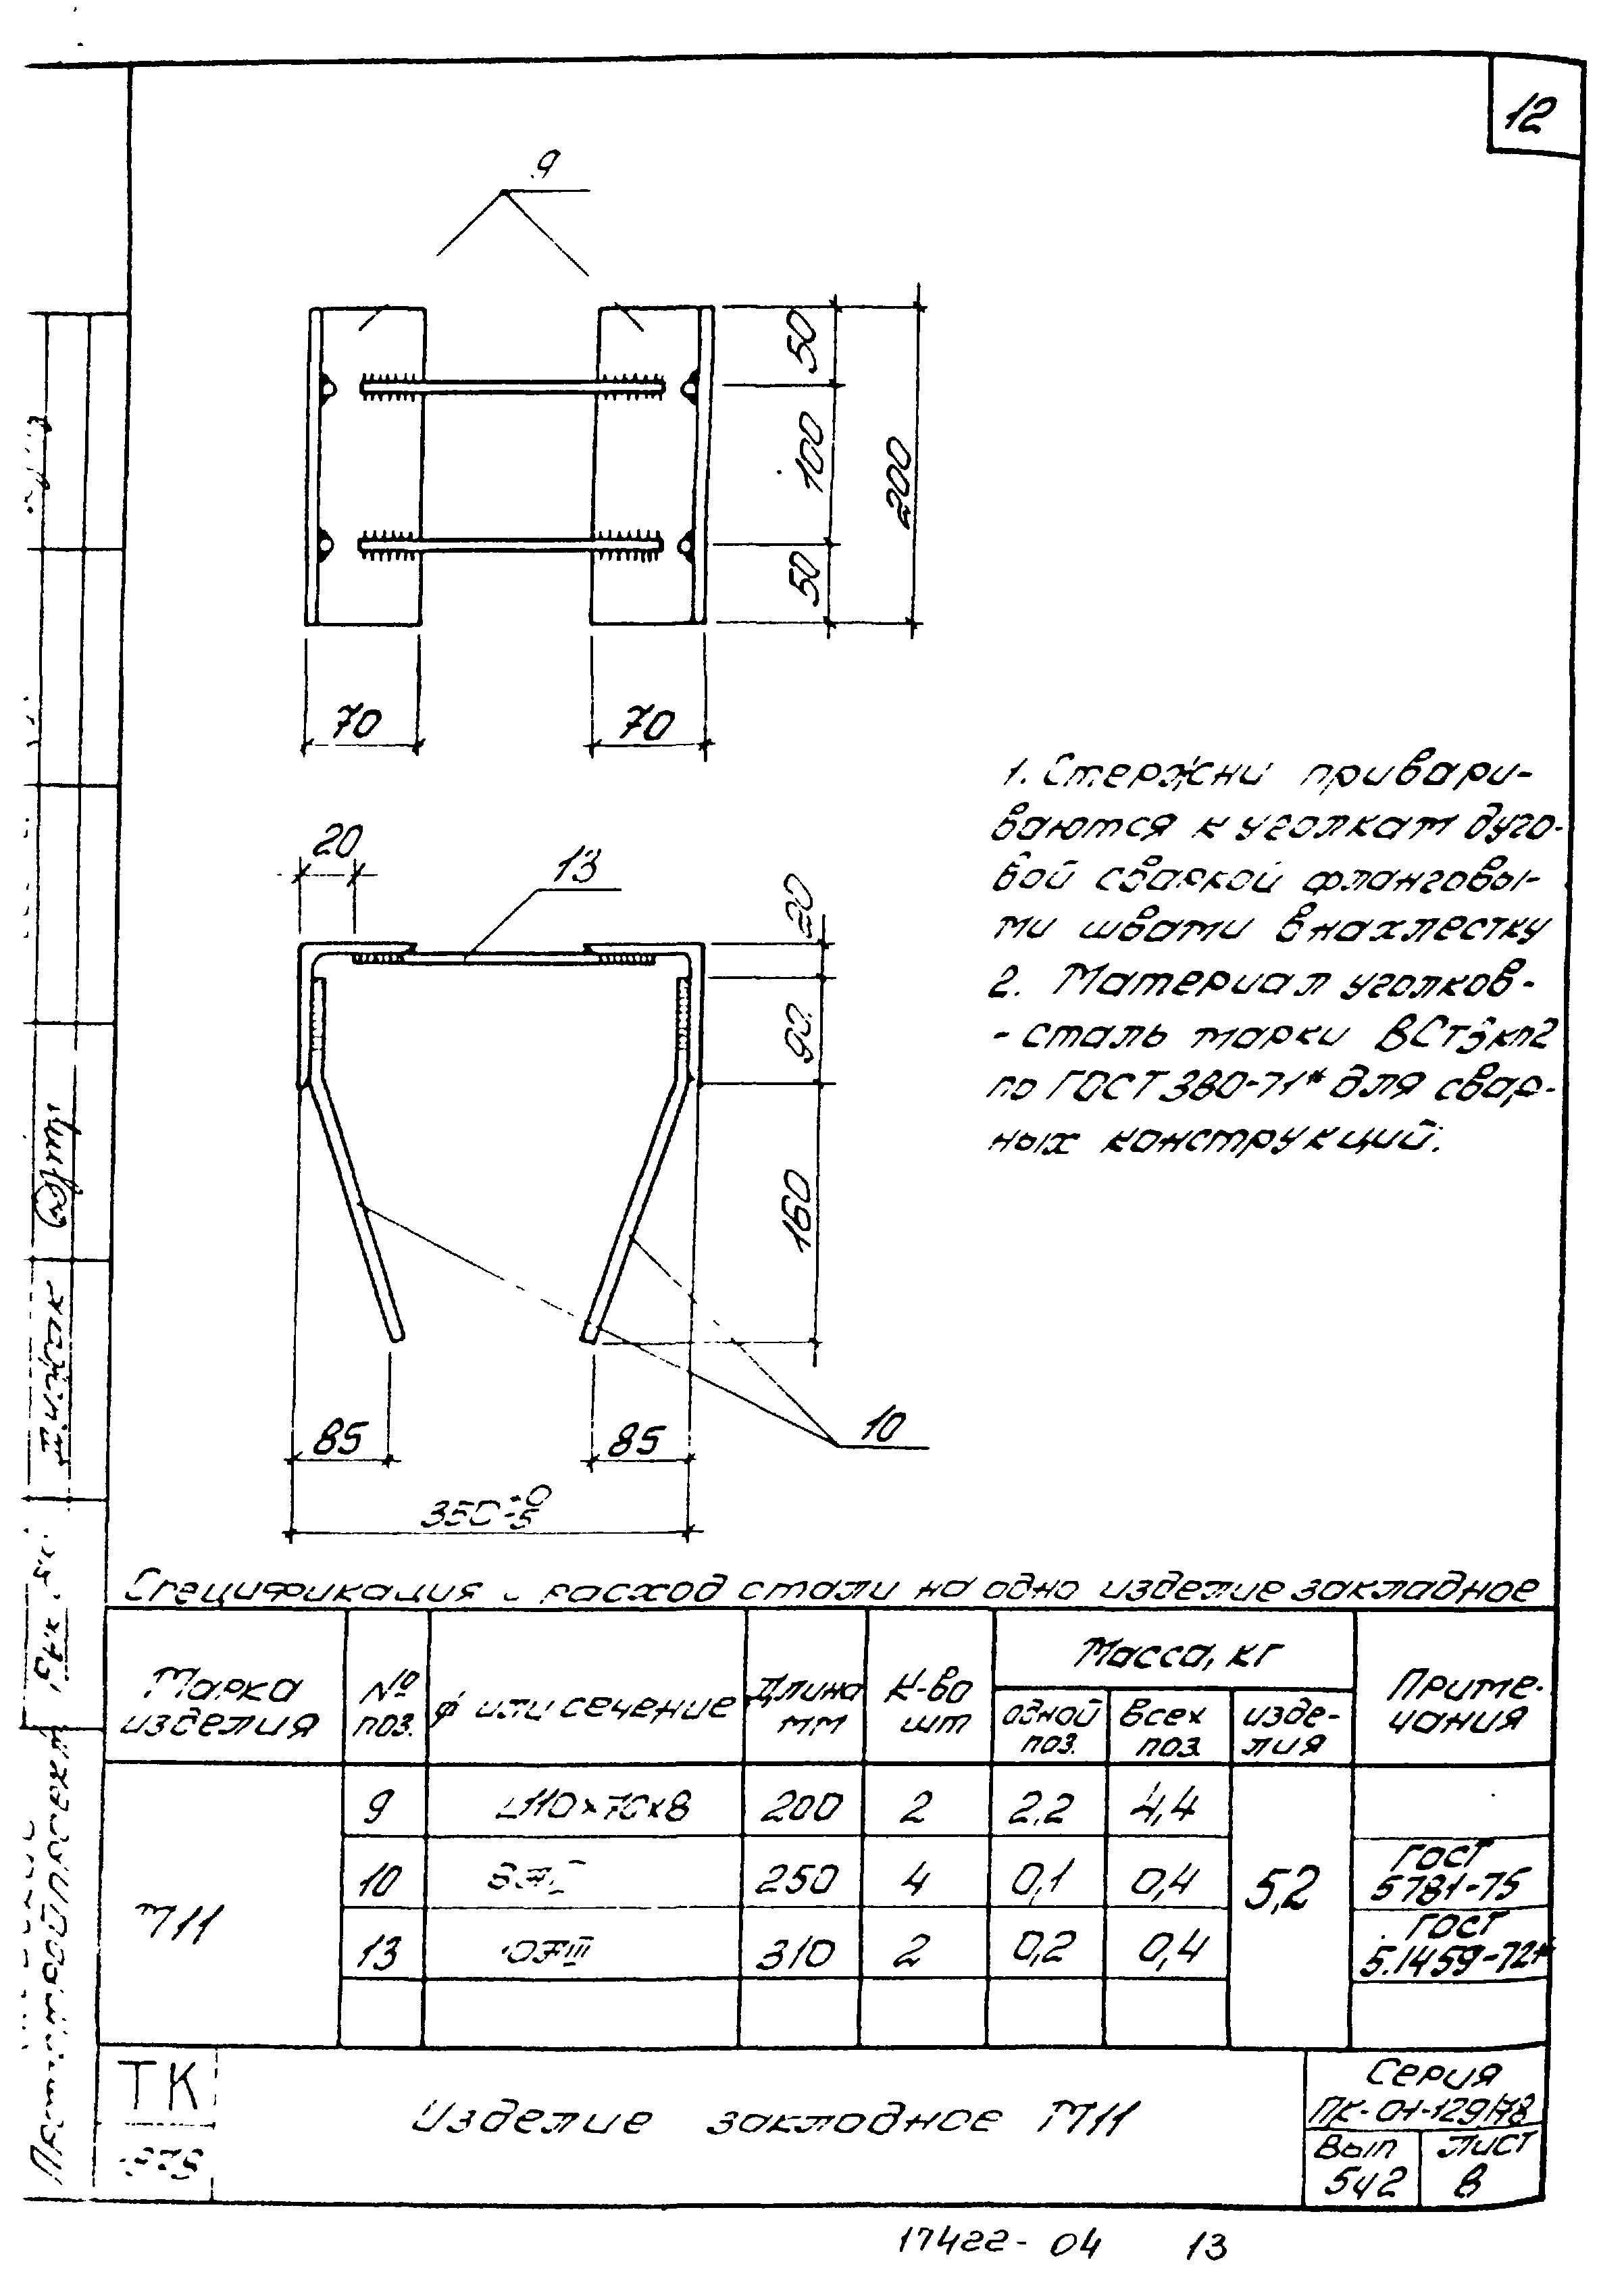 12
9
50
100
50
200
70
70
20
13
20
90
160
10
85
85
350 +0 -5
1. Стержни привари-
ваются к уголкам дуго-
вой сваркой фланговы-
ми швами внахлестку
2. Материал уголков-
- сталь марки ВСт3кп2
по ГОСТ 380-71* для свар-
ных конструкций.
Спецификация и расход стали на одно изделие закладное
Марка изделия
№ поз.
ф или сечение
Длина мм
К-во шт
Масса, кг
одной поз.
всех поз
изде-лия
Приме-чания
М11
9 ∟110×70×8 200 2 2,2 4,4
10 250 4 0,1 0,4 ГОСТ 5781-75
13 310 2 0,2 0,4 ГОСТ 5.1459-72*
5,2
ТК
Изделие закладное М11
Серия
ПК-01-129/78
Вып 5ч2
Лист 8
17422-04 13